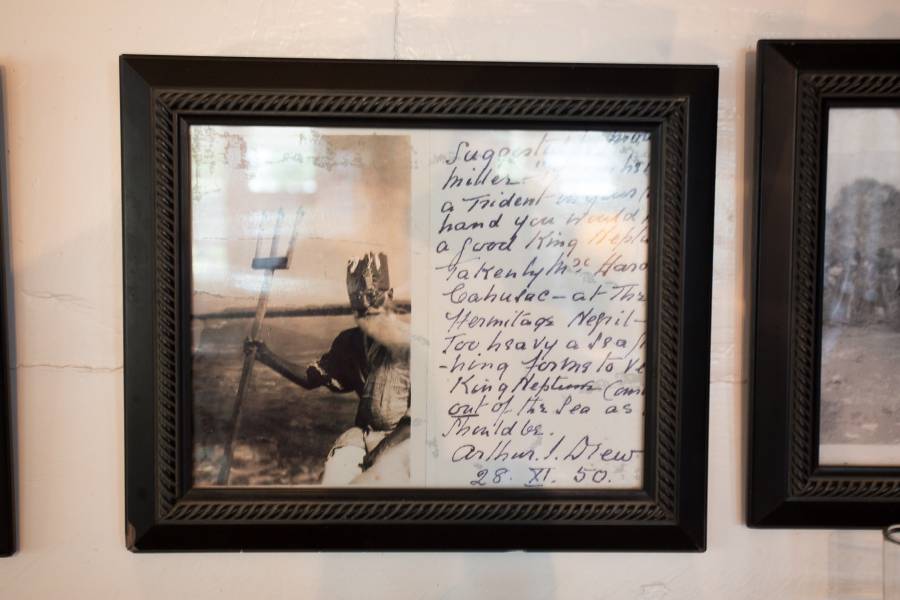 Suggest
miller
a Trident in your
hand you would
a good King Neptu
Taken by Mrs Haro
Cahusac - at The
Hermitage Negril -
Too heavy a sea
-hing for me to
King Neptune Com
out of the Sea as
Should be.
Arthur. S. Drew
28. XI. 50.